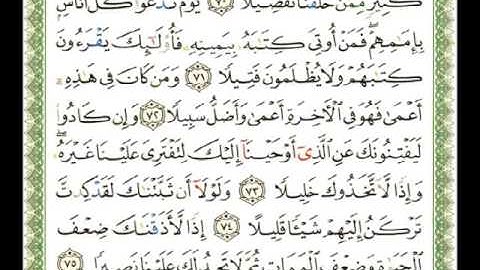 كَثِيرٍ مِّمَّنْ خَلَقْنَا تَفْضِيلًا ۝٧٠ يَوْمَ نَدْعُوا۟ كُلَّ أُنَاسٍۭ
بِإِمَٰمِهِمْ ۖ فَمَنْ أُوتِىَ كِتَٰبَهُۥ بِيَمِينِهِۦ فَأُو۟لَٰٓئِكَ يَقْرَءُونَ
كِتَٰبَهُمْ وَلَا يُظْلَمُونَ فَتِيلًا ۝٧١ وَمَن كَانَ فِى هَٰذِهِۦٓ
أَعْمَىٰ فَهُوَ فِى ٱلْءَاخِرَةِ أَعْمَىٰ وَأَضَلُّ سَبِيلًا ۝٧٢ وَإِن كَادُوا۟
لَيَفْتِنُونَكَ عَنِ ٱلَّذِىٓ أَوْحَيْنَآ إِلَيْكَ لِتَفْتَرِىَ عَلَيْنَا غَيْرَهُۥ ۖ
وَإِذًا لَّٱتَّخَذُوكَ خَلِيلًا ۝٧٣ وَلَوْلَآ أَن ثَبَّتْنَٰكَ لَقَدْ كِدتَّ
تَرْكَنُ إِلَيْهِمْ شَيْـًٔا قَلِيلًا ۝٧٤ إِذًا لَّأَذَقْنَٰكَ ضِعْفَ
ٱلْحَيَوٰةِ وَضِعْفَ ٱلْمَمَاتِ ثُمَّ لَا تَجِدُ لَكَ عَلَيْنَا نَصِيرًا ۝٧٥